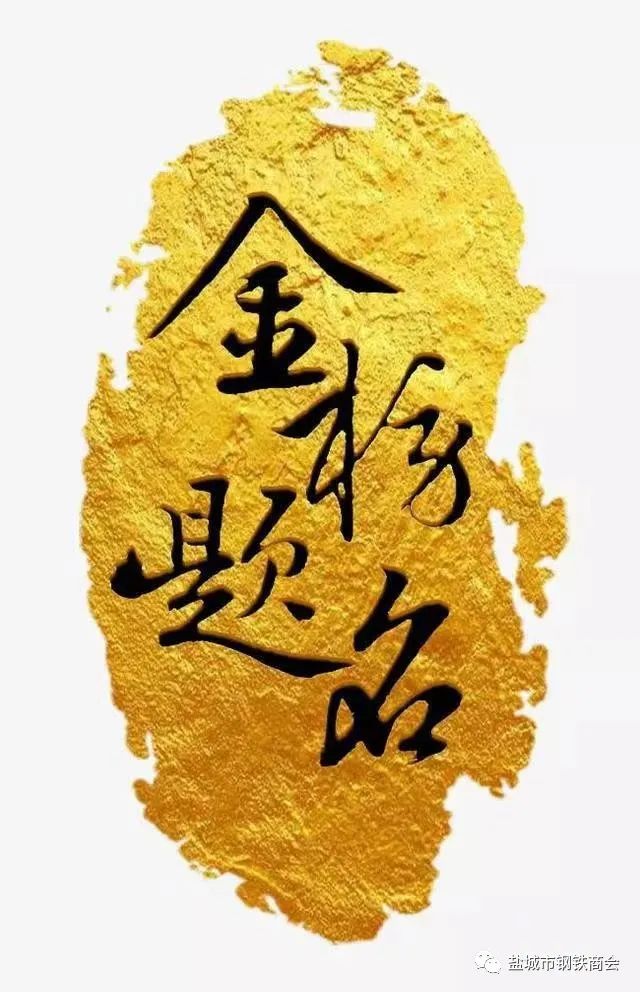 金榜
题名
盐城市钢铁商会